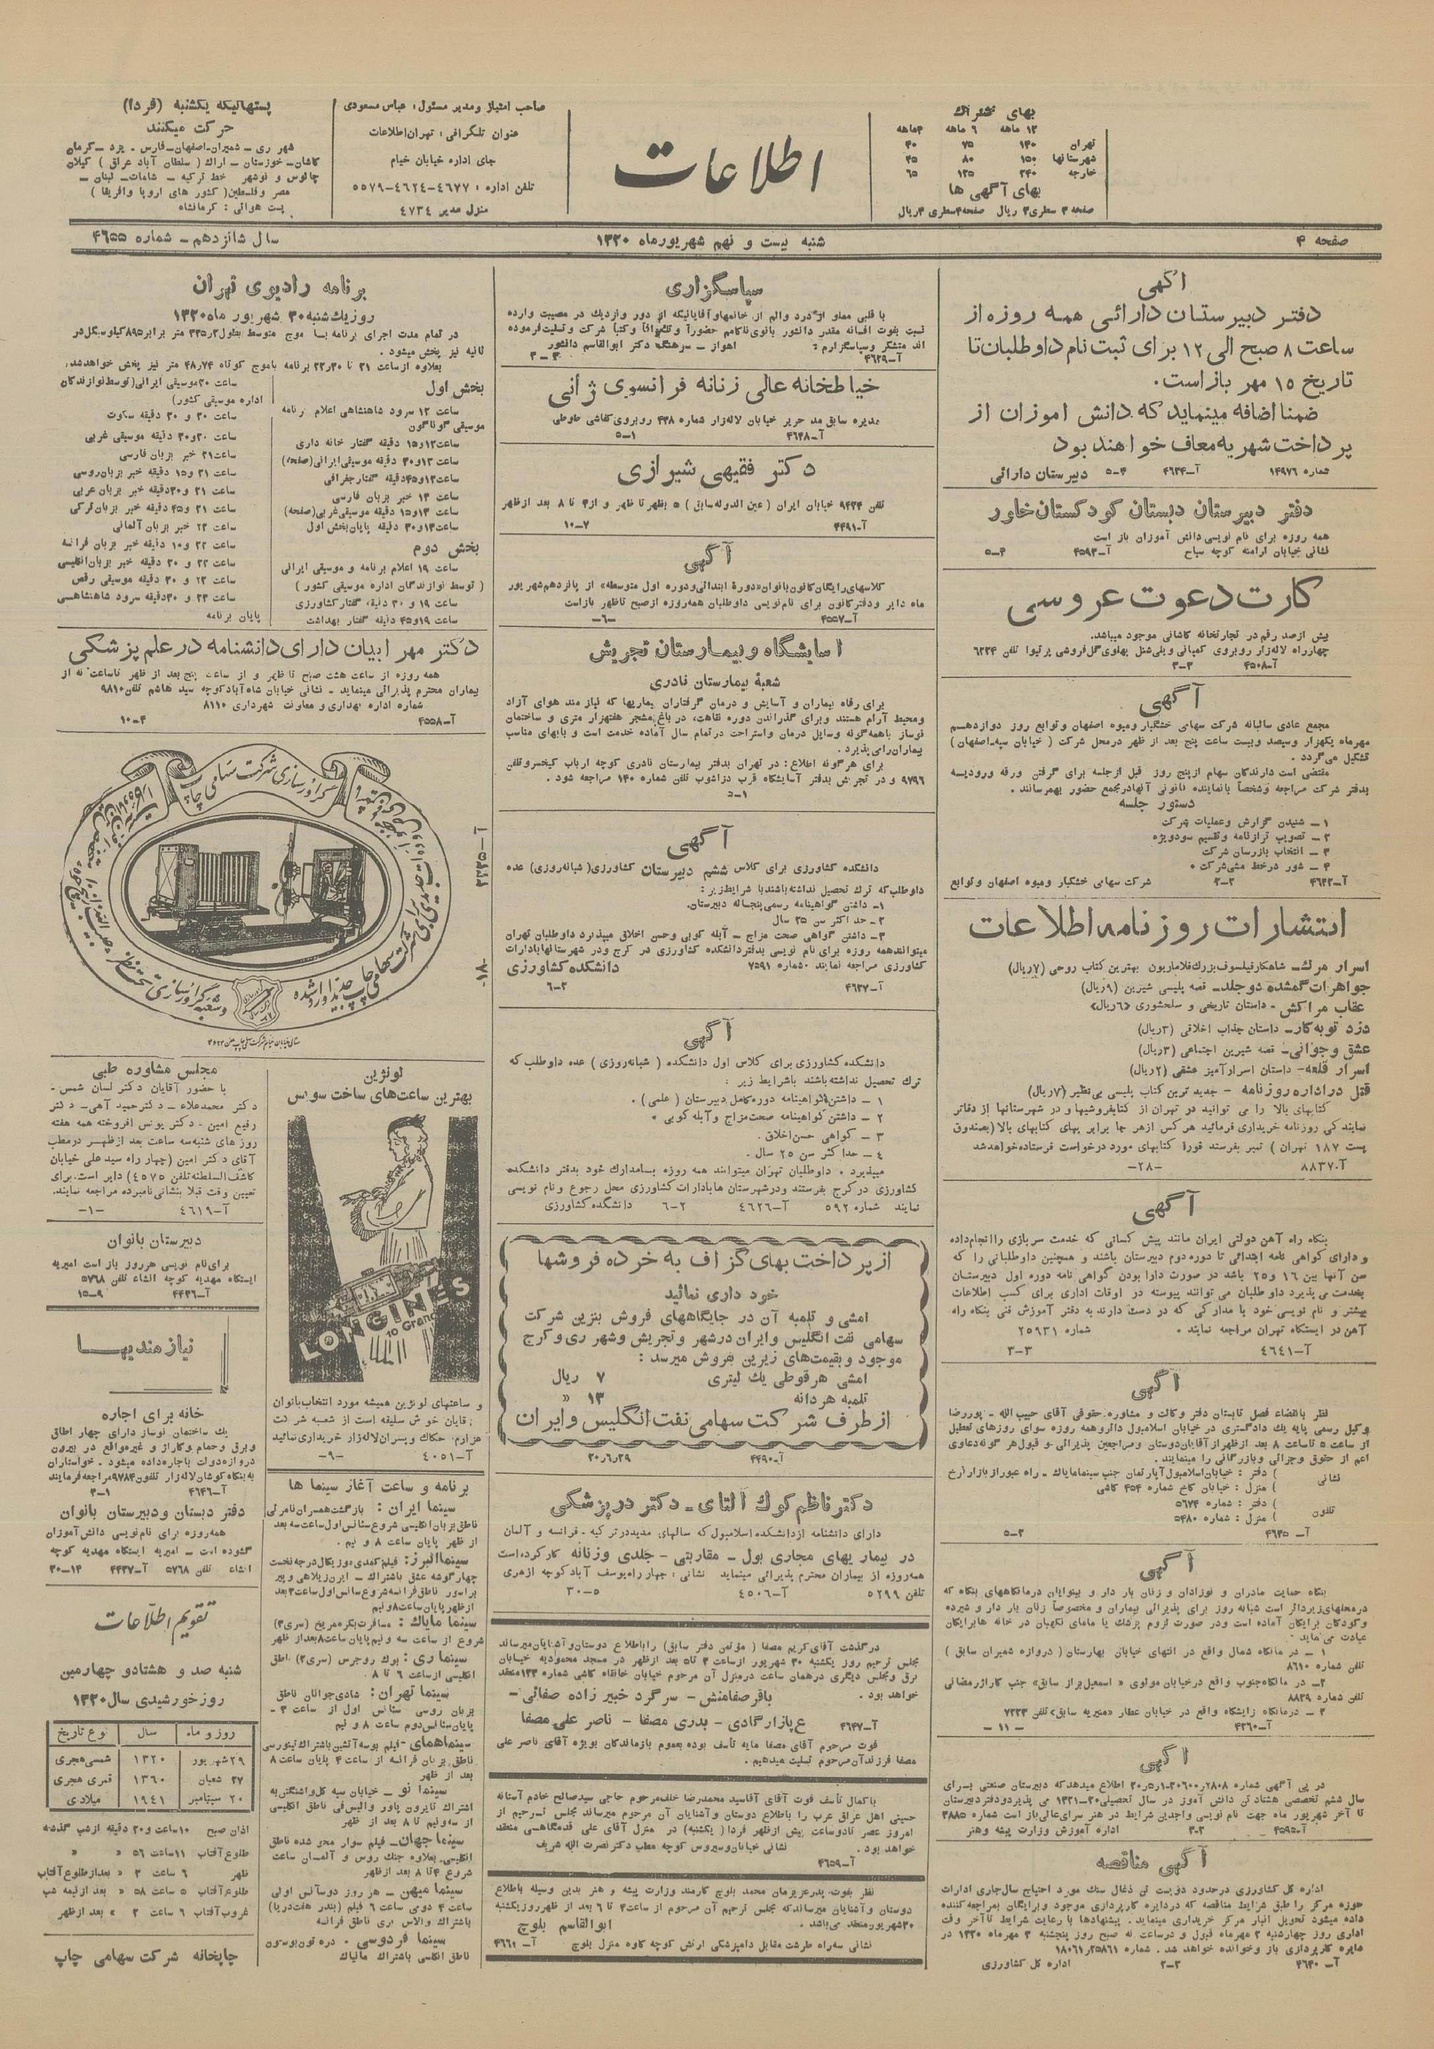 بهای اشتراک
۱۲ ماهه ۶ ماهه ۳ماهه
تهران ۱۴۰ ۷۵ ۴۰
شهرستانها ۱۵۰ ۸۰ ۴۵
خارجه ۲۴۰ ۱۲۵ ۶۵
بهای آگهی ها
اطلاعات
صاحب امتیاز ومدیر مسئول: عباس مسعودی
عنوان تلگرافی: تهران اطلاعات
جای اداره خیابان خیام
تلفن اداره: ۴۶۷۷-۴۶۲۴-۵۵۷۹
منزل مدیر ۴۷۳۴
پستهائیکه یکشنبه (فردا)
حرکت میکنند
شهر ری – شمیران-اصفهان-فارس – یزد – کرمان
کاشان- خوزستان – اراک ( سلطان آباد عراق ) گیلان
چالوس و نوشهر خط ترکیه – شامات- لبنان –
مصر وفلسطین( کشور های اروپا وافریقا )
پست هوائی: کرمانشاه
صفحه ۴
شنبه بیست و نهم شهریورماه ۱۳۲۰
سال شانزدهم – شماره ۴۶۵۵
آگهی
دفتر دبیرستان دارائی همه روزه از
ساعت ۸ صبح الی ۱۲ برای ثبت نام داوطلبان تا
تاریخ ۱۵ مهر باز است.
ضمناً اضافه مینماید که دانش آموزان از
پرداخت شهریه معاف خواهند بود
شماره ۱۴۹۷۶ آ-۴۶۳۴ ۴-۵ دبیرستان دارائی
دفتر دبیرستان دبستان کودکستان خاور
همه روزه برای نام نویسی دانش آموزان باز است
نشانی خیابان ارامنه کوچه سیاح آ-۴۵۹۳ ۴-۵
کارت دعوت عروسی
بیش ازصد رقم در تجارتخانه کاشانی موجود میباشد.
چهارراه لاله‌زار روبروی کمپانی ویلی شنل پهلوی گل‌فروشی پرتیوا تلفن ۶۲۳۴
آ-۴۵۰۸ ۳-۳
آگهی
مجمع عادی سالیانه شرکت سهامی خشگبار ومیوه اصفهان وتوابع روز دوازدهم
مهرماه یکهزار وسیصد وبیست ساعت پنج بعد از ظهر درمحل شرکت ( خیابان سپه-اصفهان )
تشکیل می‌گردد .
مقتضی است دارندگان سهام ازپنج روز قبل از جلسه برای گرفتن ورقه ورودیه
بدفتر شرکت مراجعه وشخصاً یا نماینده قانونی آنها درمجمع حضور بهمرسانند .
دستور جلسه
۱ – شنیدن گزارش وعملیات شرکت
۲ – تصویب ترازنامه وتقسیم سود ویژه
۳ – انتخاب بازرسان شرکت
۴ – شور درخط مشی شرکت .
آ-۴۶۲۲ ۲-۳ شرکت سهامی خشگبار ومیوه اصفهان وتوابع
انتشارات روزنامه اطلاعات
اسرار مرگ – شاهکار فیلسوف بزرگ فلاماریون بهترین کتاب روحی (۷ریال)
جواهرات گمشده دوجلد – قصه پلیسی شیرین (۹ریال)
عقاب مراکش – داستان تاریخی و سلحشوری (۶ریال)
دزد توبه‌کار – داستان جذاب اخلاقی (۳ریال)
عشق وجوانی – قصه شیرین اجتماعی (۳ریال)
اسرار قلعه – داستان اسرارآمیز عشقی (۲ریال)
قتل در اداره روزنامه – جدید ترین کتاب پلیسی بی‌نظیر (۷ریال)
کتابهای بالا را می توانید در تهران از کتابفروشیها و در شهرستانها از دفاتر
نمایندگی روزنامه خریداری فرمائید هرکس ازهر جا برابر بهای کتابهای بالا (بصندوق
پست ۱۸۷ تهران ) تمبر بفرستد فوراً کتابهای مورد درخواست فرستاده خواهد شد
آ-۸۸۳۷ –۲۸–
آگهی
بنگاه راه آهن دولتی ایران مانند پیش کسانی که خدمت سربازی را انجام داده
و دارای گواهی نامه ابتدائی تا دوره دوم دبیرستان باشند و همچنین داوطلبانی را که
سن آنها بین ۱۶ و۲۵ باشد در صورت دارا بودن گواهی نامه دوره اول دبیرستان
بخدمت می‌پذیرد داوطلبان می توانند پیوسته در اوقات اداری برای کسب اطلاعات
بیشتر و نام نویسی خود با مدارکی که در دست دارند به دفتر آموزش فنی بنگاه راه
آهن در ایستگاه تهران مراجعه نمایند . شماره ۲۵۹۳۱
آ-۴۶۴۱ ۳-۳
آگهی
نظر بانقضاء فصل تابستان دفتر وکالت و مشاوره حقوقی آقای حبیب‌الله – پوررضا
وکیل رسمی پایه یک دادگستری در خیابان اسلامبول دائر وهمه روزه سوای روزهای تعطیل
از ساعت ۵ تا ساعت ۸ بعد ازظهر از آقایان دوستان ومراجعین پذیرائی و قبول هر گونه دعاوی
اعم از حقوق وجزائی وبازرگانی را مینمایند .
نشانی ) دفتر : خیابان اسلامبول آپارتمان جنب سینما مایاک – راه عبور از بازار ارخ
) منزل : خیابان کاخ شماره ۴۵۴ کاشی
تلفون ) دفتر : شماره ۵۶۷۴
) منزل : شماره ۵۴۸۰
آ- ۴۶۳۵ ۲-۵
آگهی
بنگاه حمایت مادران و نوزادان و زنان بار دار و بینوایان درمانگاههای بنگاه که
درمحلهای زیر دائر است شبانه روز برای پذیرائی بیماران و مخصوصاً زنان بار دار و شیرده
وکودکان بیرایگان آماده است ودر صورت لزوم پزشک یا مامای نگهبان در خانه ها برایگان
عیادت می نماید .
۱ – درمانگاه شمال واقع در انتهای خیابان بهارستان ( دروازه شمیران سابق )
تلفن شماره ۸۶۱۰
۲– درمانگاه جنوب واقع در خیابان مولوی « اسمعیل بزاز سابق» جنب کاراژ رمضانی
تلفن شماره ۸۸۲۹
۳ – درمانگاه زایشگاه واقع در خیابان عطار «منیریه سابق» تلفن ۷۲۲۳
آ-۴۲۶۰ – ۱۱ –
آگهی
سال ششم تخصصی هشتادتن دانش آموز در سال تحصیلی ۲۰-۱۳۲۱ می پذیرد ودفتر دبیرستان
تا آخر شهریور ماه جهت نام نویسی واجدین شرایط در هنر سرای عالی باز است شماره ۳۸۸۵
آ-۴۵۹۵ ۳-۳ اداره آموزش وزارت پیشه وهنر
آگهی مناقصه
اداره کل کشاورزی درحدود دویست تن ذغال سنگ مورد احتیاج سال جاری ادارات
حوزه مرکز را طبق شرایط مناقصه که دردایره کارپردازی موجود وبرایگان بمراجعه کننده
داده میشود تحویل انبار مرکز خریداری مینماید . پیشنهادها با رعایت شرایط تا آخر وقت
اداری روز چهارشنبه ۲ مهرماه قبول و درساعت نه صبح روز پنجشنبه ۳ مهرماه ۱۳۲۰ در
دایره کارپردازی باز وخوانده خواهد شد .
آ- ۴۶۴۰ ۲-۳ اداره کل کشاورزی
سپاسگزاری
با قلبی مملو از درد والم از خانمها وآقایانیکه از دور ونزدیک در مصیبت وارده
نسبت بفوت افسانه مقدر دانشور بانوی ناکامم حضوراً وتلفوناً وکتباً شرکت وتسلیت فرموده
اند متشکر وسپاسگزارم ؛ اهواز – سرهنگ دکتر ابوالقاسم دانشور
آ-۴۶۲۹ ۳-۳
خیاطخانه عالی زنانه فرانسوی ژانی
مدیره سابق مد حریر خیابان لاله‌زار شماره ۴۳۸ روبروی کفاشی طوطی
آ-۴۶۴۸ ۱-۵
دکتر فقیهی شیرازی
تلفن ۹۴۳۴ خیابان ایران (عین الدوله سابق ) ۵ بظهر تا ظهر و از۴ تا ۸ بعد ازظهر
آ-۴۴۹۱ ۷-۱۰
آگهی
کلاسهای رایگان کانون بانوان «دورهٔ ابتدائی ودوره اول متوسطه» از پانزدهم شهریور
ماه دایر ودفتر کانون برای نام نویسی داوطلبان همه روزه ازصبح تا ظهر باز است
آ-۴۵۵۷ –۶–
آسایشگاه و بیمارستان تجریش
شعبهٔ بیمارستان نادری
برای رفاه بیماران و آسایش و درمان گرفتاران بیماریها که نیازمند هوای آزاد
ومحیط آرام هستند وبرای گذراندن دوره نقاهت، در باغ مشجر هفتهزار متری و ساختمان
نوساز باهمه گونه وسایل درمان واستراحت درتمام سال آماده خدمت است و با بهای مناسب
بیماران را می پذیرد .
برای هر گونه اطلاع : در تهران بدفتر بیمارستان نادری کوچه ارباب کیخسرو تلفن
۹۷۹۶ و در تجریش بدفتر آسایشگاه قرب دزاشوب تلفن شماره ۱۴۰ مراجعه شود .
۱-۵
آگهی
دانشکده کشاورزی برای کلاس ششم دبیرستان کشاورزی( شبانه روزی) عده
داوطلب که ترک تحصیل نداشته باشند با شرایط زیر :
۱- داشتن گواهینامه رسمی پنجساله دبیرستان.
۲- حد اکثر سن ۲۵ سال
۳- داشتن گواهی صحت مزاج – آبله کوبی وحسن اخلاق میپذیرد داوطلبان تهران
میتوانند همه روزه برای نام نویسی بدفتر دانشکده کشاورزی در کرج ودر شهرستانها بادارات
کشاورزی مراجعه نمایند . شماره ۷۵۹۱ دانشکده کشاورزی
آ-۴۶۲۷ ۲-۶
آگهی
دانشکده کشاورزی برای کلاس اول دانشکده ( شبانه روزی ) عده داوطلب که
ترک تحصیل نداشته باشند باشرایط زیر :
۱ – داشتن گواهینامه دوره کامل دبیرستان ( علمی ) .
۲ – داشتن گواهینامه صحت مزاج وآبله کوبی .
۳ – گواهی حسن اخلاق .
۴ – حداکثر سن ۲۵ سال .
میپذیرد . داوطلبان تهران میتوانند همه روزه بامدارک خود بدفتر دانشکده
کشاورزی در کرج بفرستند ودرشهرستان ها بادارات کشاورزی محل رجوع و نام نویسی
نمایند شماره ۵۹۲ آ-۴۶۲۶ ۲-۶ دانشکده کشاورزی
از پرداخت بهای گزاف به خرده فروشها
خود داری نمائید
امشی و تلمبه آن در جایگاههای فروش بنزین شرکت
سهامی نفت انگلیس وایران درشهر و تجریش وشهر ری وکرج
موجود و بقیمت‌های زیرین بفروش میرسد :
امشی هر قوطی یک لیتری ۷ ریال
تلمبه هر دانه ۱۳ «
از طرف شرکت سهامی نفت انگلیس و ایران
آ-۴۴۹۰ ۲۰٫۶٫۲۹
دکتر ناظم کوک آلتای – دکتر در پزشکی
دارای دانشنامه ازدانشکده اسلامبول که سالهای مدیددر ترکیه – فرانسه و آلمان
در بیمار یهای مجاری بول – مقاربتی – جلدی وزنانه کار کرده است
همه روزه از بیماران محترم پذیرائی مینماید نشانی : چهارراه یوسف آباد کوچه ازهری
تلفن ۵۲۹۹ آ-۴۵۰۶ ۵-۳۰
درگذشت آقای کریم مصفا ( مؤتمن دفتر سابق) را باطلاع دوستان وآشنایان میرساند
مجلس ترحیم روز یکشنبه ۳۰ شهریور ازساعت ۴ تا۵ بعد ازظهر در مسجد محمودیه خیابان
برق ومجلس دیگری درهمان ساعت درمنزل آن مرحوم خیابان خانقاه کاشی شماره ۱۲۳ منعقد
خواهد بود . باقر صفامنش – سرگرد خبیر زاده صفائی –
آ-۴۶۴۷ ع بازارگادی – بدری مصفا – ناصر علی مصفا
فوت مرحوم آقای مصفا مایه تأسف بوده بعموم بازماندگان بویژه آقای ناصر علی
مصفا فرزند آن مرحوم تسلیت میدهیم .
باکمال تأسف فوت آقای آقاسید محمدرضا خلف مرحوم حاجی سیدصالح خادم آستانه
حسینی اهل عراق عرب را باطلاع دوستان وآشنایان آن مرحوم میرساند مجلس ترحیم از
امروز عصر تا دوساعت پیش ازظهر فردا ( یکشنبه) در منزل آقای علی قدمگاهی منعقد
خواهد بود . نشانی خیابان سیروس کوچه مطب دکتر نصرت الله شریف
آ-۴۶۵۹
نظر بفوت پدرعزیزمان محمد بلوچ کارمند وزارت پیشه و هنر بدین وسیله باطلاع
دوستان وآشنایان میرساندکه مجلس ترحیم آن مرحوم از ساعت۴ تا ۶ بعد از ظهر روز یکشنبه
۳۰ شهریور منعقد می‌باشد . ابوالقاسم بلوچ
نشانی سه‌راه طرشت مقابل دامپزشکی ارتش کوچه کاوه منزل بلوچ آ-۴۶۶۱
برنامه رادیوی تهران
روز یکشنبه ۳۰ شهریور ماه ۱۳۲۰
در تمام مدت اجرای برنامه بسا موج متوسط بطول ۳۳۵٫۲ متر برابر ۸۹۵ کیلوسیکل در
ثانیه نیز پخش میشود .
بعلاوه از ساعت ۲۱ تا ۲۲٫۳۰ برنامه باموج کوتاه ۴۸٫۷۴ متر نیز پخش خواهد شد.
بخش اول
ساعت ۱۲ سرود شاهنشاهی اعلام برنامه
موسیقی گوناگون
ساعت ۱۲و۱۵ دقیقه گفتار خانه داری
ساعت ۱۲و۳۰ دقیقه موسیقی ایرانی(صفحه)
ساعت ۱۲و۴۵دقیقه گفتار جغرافی
ساعت ۱۳ خبر بزبان فارسی
ساعت ۱۳و۱۵ دقیقه موسیقی غربی(صفحه)
ساعت ۱۳و۳۰ دقیقه پایان بخش اول
بخش دوم
ساعت ۱۹ اعلام برنامه و موسیقی ایرانی
( توسط نوازندگان اداره موسیقی کشور )
ساعت ۱۹ و ۳۰ دقیقه گفتار کشاورزی
ساعت ۱۹و۴۵ دقیقه گفتار بهداشت
ساعت ۲۰ موسیقی ایرانی( توسط نوازندگان
اداره موسیقی کشور)
ساعت ۲۰ و ۳۰ دقیقه سکوت
ساعت ۲۰و۴۰ دقیقه موسیقی غربی
ساعت ۲۱ خبر بزبان فارسی
ساعت ۲۱ و۱۵ دقیقه خبر بزبان روسی
ساعت ۲۱ و۳۰ دقیقه خبر بزبان عربی
ساعت ۲۱ و۴۵ دقیقه خبر بزبان ترکی
ساعت ۲۲ خبر بزبان آلمانی
ساعت ۲۲ و۱۰ دقیقه خبر بزبان فرانسه
ساعت ۲۲ و ۲۰ دقیقه خبر بزبان انگلیسی
ساعت ۲۲ و ۳۰ دقیقه موسیقی رقص
ساعت ۲۳ و ۳۰ دقیقه سرود شاهنشاهی
پایان برنامه
دکتر مهر ابیان دارای دانشنامه در علم پزشکی
همه روزه از ساعت هشت صبح تا ظهر و از ساعت پنج بعد از ظهر تا ساعت نه از
بیماران محترم پذیرائی مینماید – نشانی خیابان شاه آباد کوچه سید هاشم تلفن ۹۸۱۰
شماره اداره بهداری و معاونت شهرداری ۸۱۱۰
آ-۴۵۵۸ ۴-۱۰
گراورسازی شرکت سهامی چاپ
لونژین
بهترین ساعت‌های ساخت سویس
LONGINES
10 Grands
و ساعتهای لونژین همیشه مورد انتخاب بانوان
و آقایان خوش سلیقه است از شعبه شرکت
آ-۴۰۵۱ –۹–
مجلس مشاوره طبی
با حضور آقایان دکتر لسان شمس –
دکتر محمدعلاء – دکتر حمید آهی – دکتر
رفیع امین – دکتر یونس افروخته همه هفته
روزهای شنبه سه ساعت بعد ازظهر درمطب
آقای دکتر امین (چهار راه سید علی خیابان
کاشف السلطنه تلفن ۴۵۷۵) دایر است. برای
تعیین وقت قبلا بنشانی نامبرده مراجعه نمایند.
آ-۴۶۱۹ –۱–
دبیرستان بانوان
برای نام نویسی هرروز باز است امیریه
ایستگاه مهدیه کوچه انشاء تلفن ۵۷۶۸
آ-۴۴۳۶ ۹-۱۵
نیازمندیها
خانه برای اجاره
یک ساختمان نوساز دارای چهار اطاق
وبرق وحمام وکاراژ و غیره واقع در بیرون
دروازه دولت باجاره داده میشود . خواستاران
به بنگاه کوشان لاله‌زار تلفون ۹۷۸۴ مراجعه فرمایند
آ-۴۶۴۶ ۱-۳
دفتر دبستان ودبیرستان بانوان
همه روزه برای نام نویسی دانش آموزان
گشوده است – امیریه ایستگاه مهدیه کوچه
انشاء تلفن ۵۷۶۸ آ-۴۴۳۷ ۱۴-۳۰
برنامه و ساعت آغاز سینما ها
سینما ایران : بازگشت همسران نامرئی
ناطق بزبان انگلیسی شروع سئانس اول ساعت سه بعد
از ظهر پایان ساعت ۸ و نیم .
سینما البرز: فیلم کمدی وزیکال درجه نخست
سینما مایاک : مسافرت بکره مریخ (سری۲)
شروع از ساعت سه و نیم پایان ساعت ۸ بعد از ظهر
سینما ری: بوک روجرس (سری۲) ناطق
انگلیسی از ساعت ۶ تا ۸ .
سینما تهران: شادی جوانان ناطق
بزبان روسی سئانس اول از ساعت ۳ –
پایان سئانس دوم ساعت ۸ و نیم
ناطق بزبان فرانسه از ساعت ۴ پایان ساعت ۸
بعد از ظهر
سینما نو – خیابان سپه
از سه و نیم تا ۸ بعد از ظهر
سینما جهان – فیلم سوار محو شده ناطق
انگلیسی بعلاوه جنگ روس و آلمان ساعت
شروع ۴ تا ۸ بعد ازظهر
سینما میهن – هر روز دو سآنس اولی
ساعت ۴ دومی ساعت ۶ فیلم (بندر هفت دریا)
باشتراک والاس بری ناطق فرانسه
سینما فردوسی .
تقویم اطلاعات
شنبه صد و هشتادو چهارمین
روز خورشیدی سال ۱۳۲۰
روز و ماه سال نوع تاریخ
۲۹شهریور ۱۳۲۰ شمسی هجری
۲۷ شعبان ۱۳۶۰ قمری هجری
۲۰ سپتامبر ۱۹۴۱ میلادی
اذان صبح ۱۰ساعت و۲۰ دقیقه از شب گذشته
طلوع آفتاب ۱۱ساعت ۵۶ « «
ظهر ۶ ساعت ۳ « بعد از طلوع آفتاب
طلوع آفتاب ۵ ساعت ۵۸ « بعد از نیمه شب
غروب آفتاب ۶ ساعت ۲ « بعد از ظهر
چاپخانه شرکت سهامی چاپ